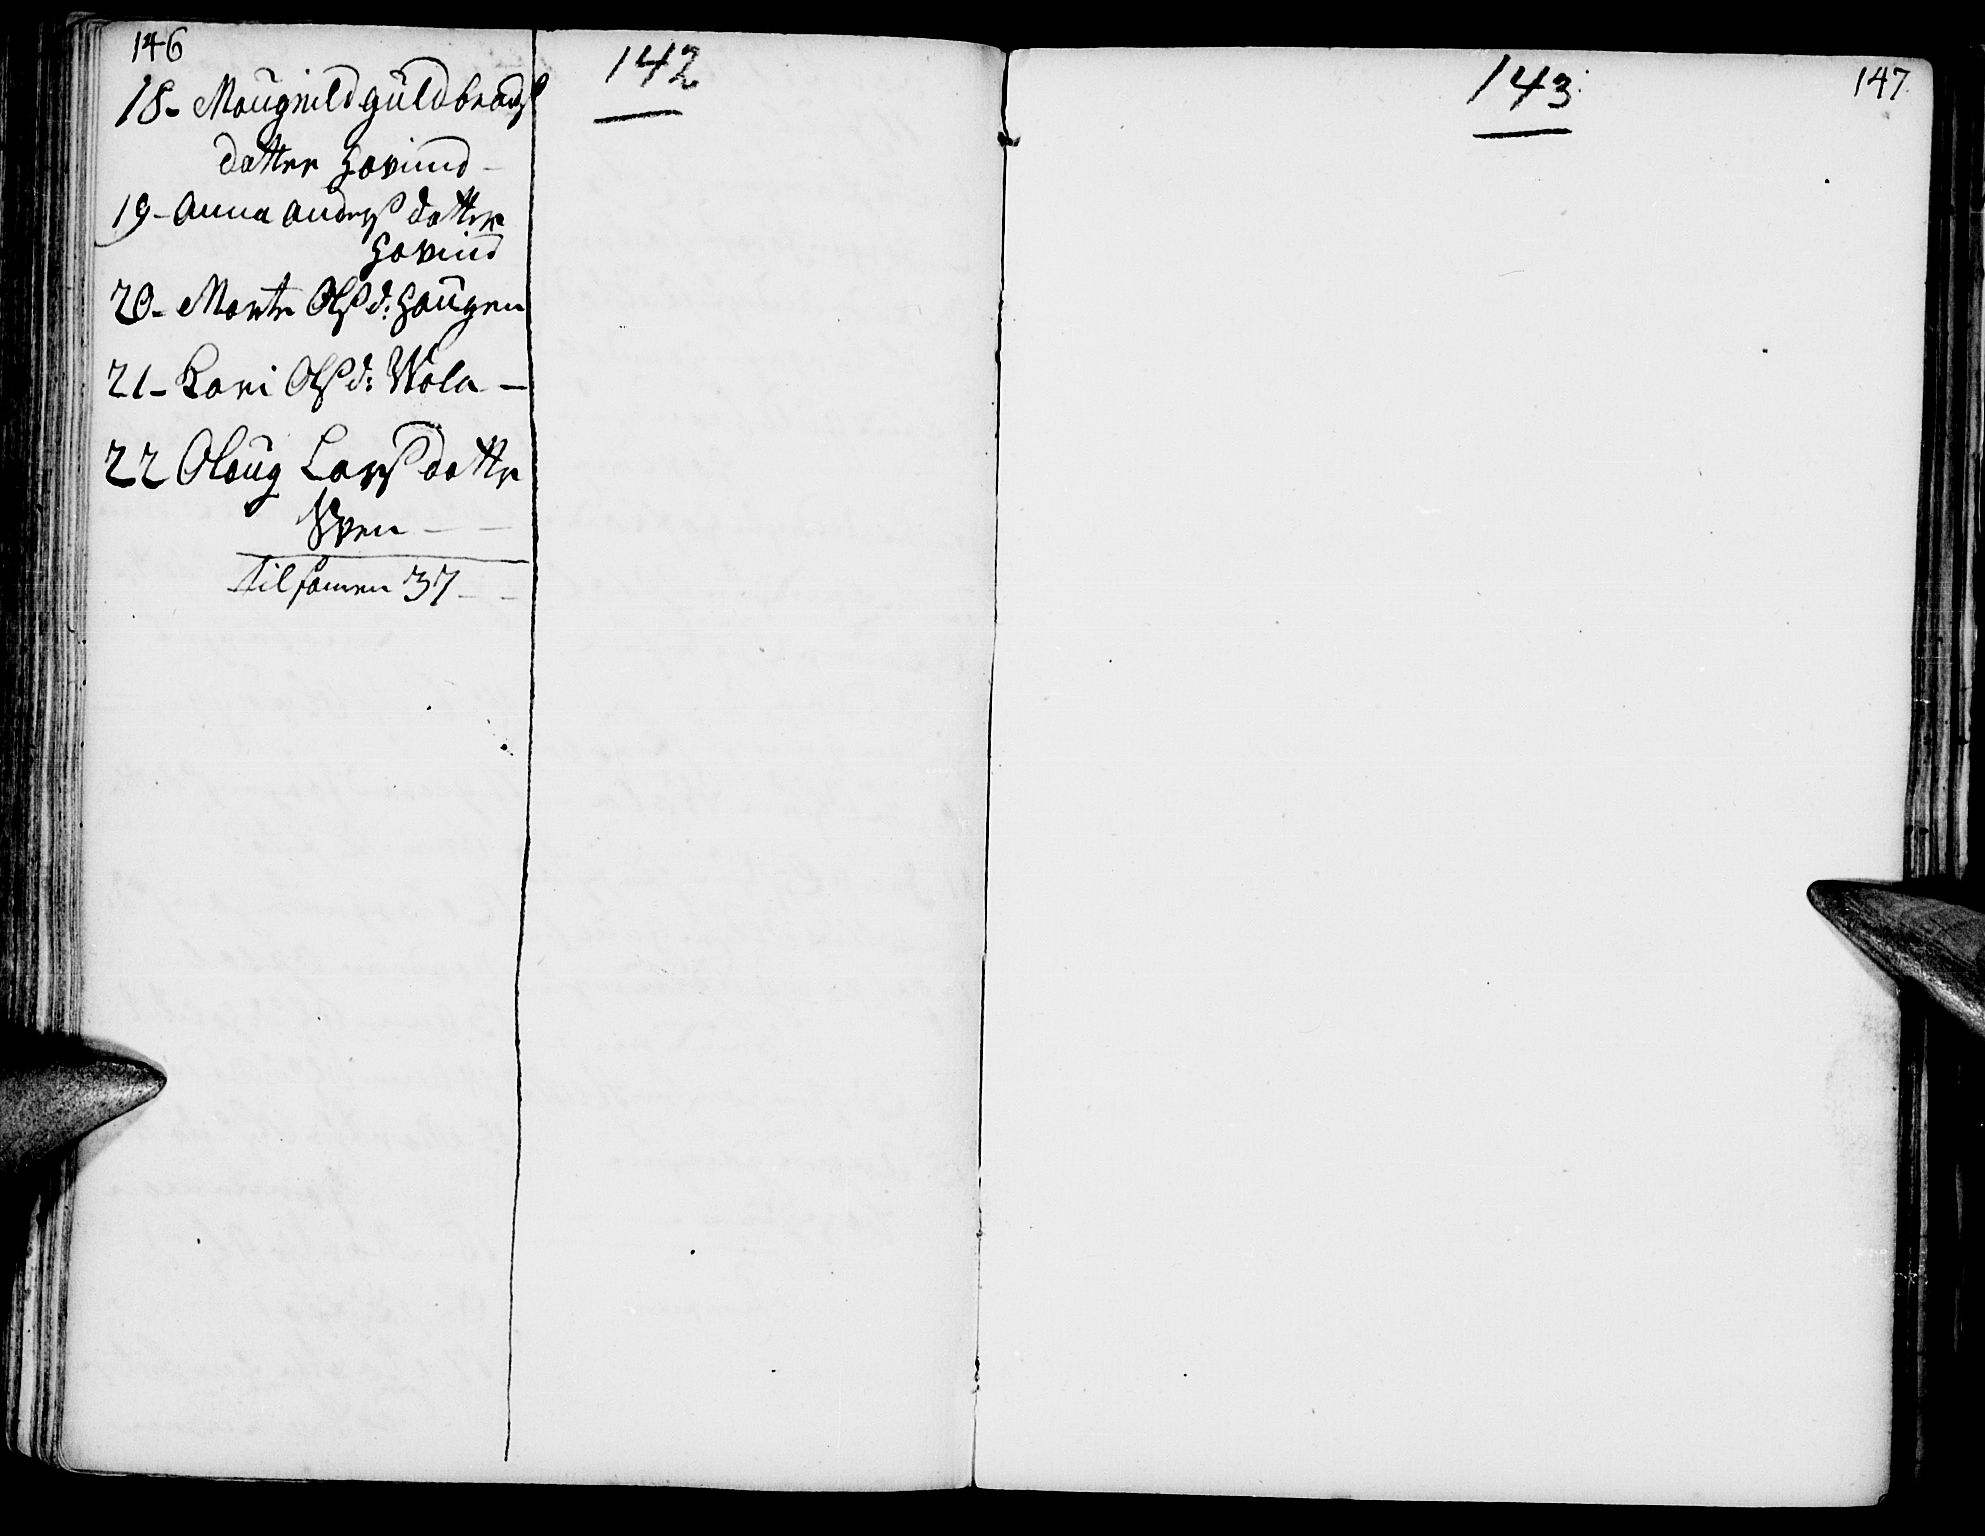 146
142
18- Mougnild Guldbrands
datter Hovind -
19- Anna Anders datter
Hovind
20- Marte Ols d: Haugen
21- Kari Ols d: Wola -
22 Oloug Lars datter
Tilsamen 37 - -
143
147